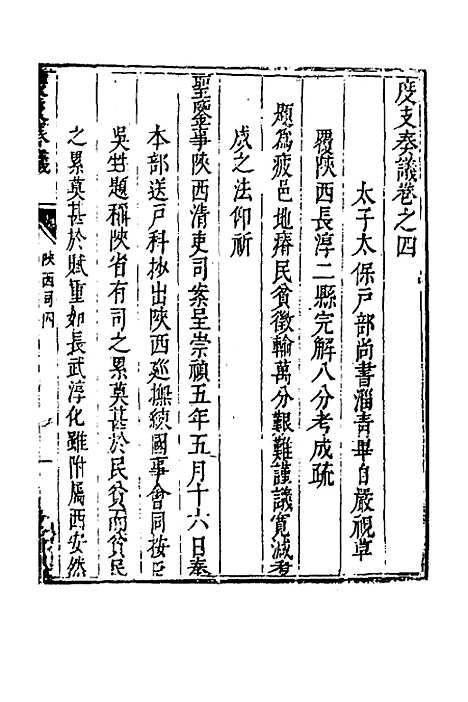 度支奏議卷之四
太子太保戶部尚書淄青畢自嚴視草
覆陝西長淳二縣完解八分考成疏
題為疲邑地瘠民貧徵輸萬分艱難謹議寬減考
成之法仰祈
聖鑒事陝西清吏司案呈崇禎五年五月十六日奉
本部送戶科抄出陝西巡撫練國事會同按臣
吳甡題稱陝省有司之累莫甚於民貧而貧民
之累莫甚於賦重如長武淳化雖附屬西安然
度支奏議
陝西司四